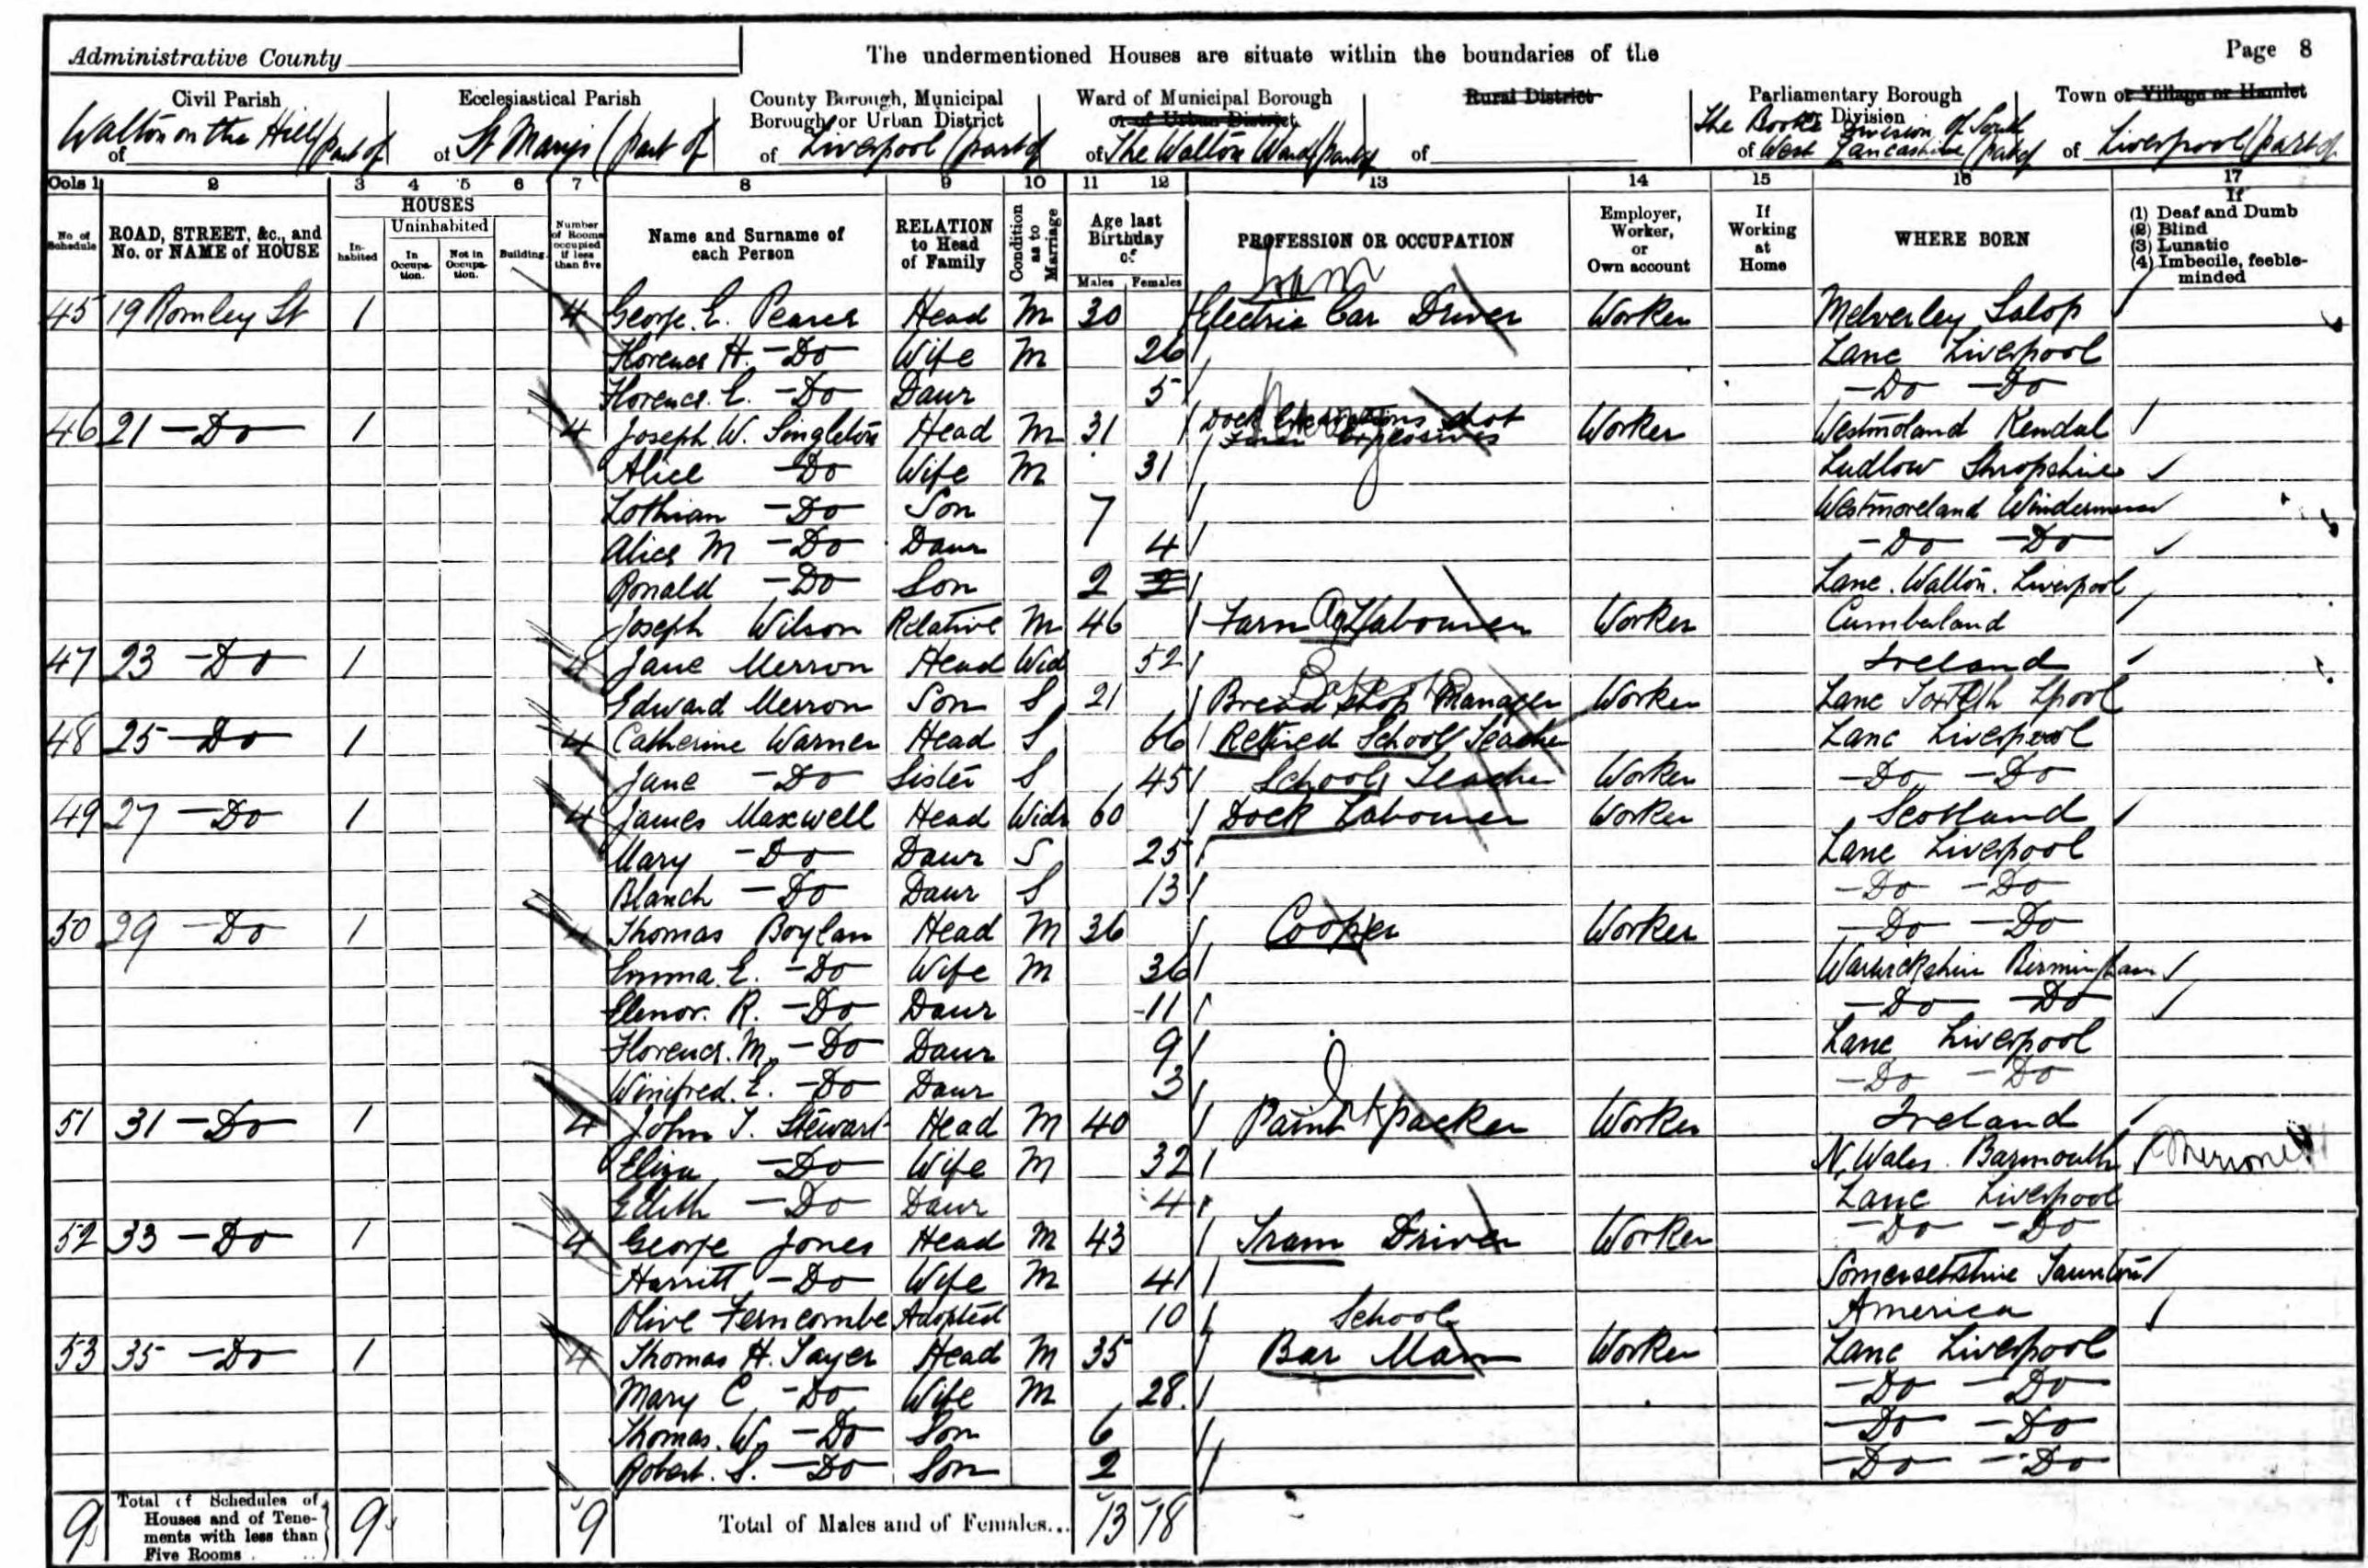 Administrative County
The undermentioned Houses are situate within the boundaries of the
Page 8
Civil Parish
Ecclesiastical Parish
County Borough, Municipal Borough or Urban District
Ward of Municipal Borough or of Urban District
Rural District
Parliamentary Borough or Division
Town or Village or Hamlet
of Walton on the Hill (part of
of St Marys (part of
of Liverpool (part of
of The Walton Ward (part of
of
The Bootle Division of South
of West Lancashire (part of
of Liverpool (part of
Cols 1 2 3 4 5 6 7 8 9 10 11 12 13 14 15 16 17
No of Schedule
ROAD, STREET, &c., and No. or NAME of HOUSE
HOUSES
Inhabited
Uninhabited
In Occupation.
Not in Occupation.
Building
Number of Rooms occupied if less than five
Name and Surname of each Person
RELATION to Head of Family
Condition as to Marriage
Age last Birthday of
Males Females
PROFESSION OR OCCUPATION
Employer, Worker, or Own account
If Working at Home
WHERE BORN
If
(1) Deaf and Dumb
(2) Blind
(3) Lunatic
(4) Imbecile, feeble-minded
Tram
45 19 Romley St 1 4 George. E. Pearce Head M 30 Electric Car Driver Worker Melverley Salop
Florence H. - Do Wife M 26 Lanc Liverpool
Florence. E. - Do Daur 5 - Do - Do
46 21 - Do 1 4 Joseph. W. Singleton Head M 31 Dock Excavations shot Worker Westmoland Kendal
Firer Explosives
Alice - Do Wife M 31 Ludlow Shropshire
Lothian - Do Son 7 Westmoreland Windermere
Alice M - Do Daur 4 - Do - Do
Ronald - Do Son 2 2 Lanc. Walton. Liverpool
Joseph Wilson Relative M 46 Farm Ag Labourer Worker Cumberland
47 23 - Do 1 4 Jane Merron Head Wid 52 Ireland
Edward Merron Son S 21 Bread shop Manager Worker Lanc Toxteth Lpool
48 25 - Do 1 4 Catherine Warner Head S 66 Retired School Teacher Lanc Liverpool
Jane - Do Sister S 45 School Teacher Worker - Do - Do
49 27 - Do 1 4 James Maxwell Head Widr 60 Dock Labourer Worker Scotland
Mary - Do Daur S 25 Lanc Liverpool
Blanch - Do Daur S 13 - Do - Do
50 29 - Do 1 4 Thomas Boylan Head M 36 Cooper Worker - Do - Do
Emma. E. - Do Wife M 36 Warwickshire Birmingham
Elenor. R. - Do Daur 11 - Do - Do
Florence. M. - Do Daur 9 Lanc Liverpool
Winifred. E. - Do Daur 3 - Do - Do
51 31 - Do 1 4 John T. Stewart Head M 40 Paint packer Worker Ireland
Eliza - Do Wife M 32 N. Wales. Barmouth Merioneth
Edith - Do Daur 4 Lanc Liverpool
52 33 - Do 1 4 George Jones Head M 43 Tram Driver Worker - Do - Do
Harritt - Do Wife M 41 Somersetshire Taunton
Olive Ferncombe Adopted 10 School America
53 35 - Do 1 4 Thomas H. Sayer Head M 35 Bar Man Worker Lanc Liverpool
Mary C - Do Wife M 28 - Do - Do
Thomas. W. - Do Son 6 - Do - Do
Robert. S. - Do Son 2 - Do - Do
9 Total of Schedules of Houses and of Tenements with less than Five Rooms 9 9 Total of Males and of Females... 13 18